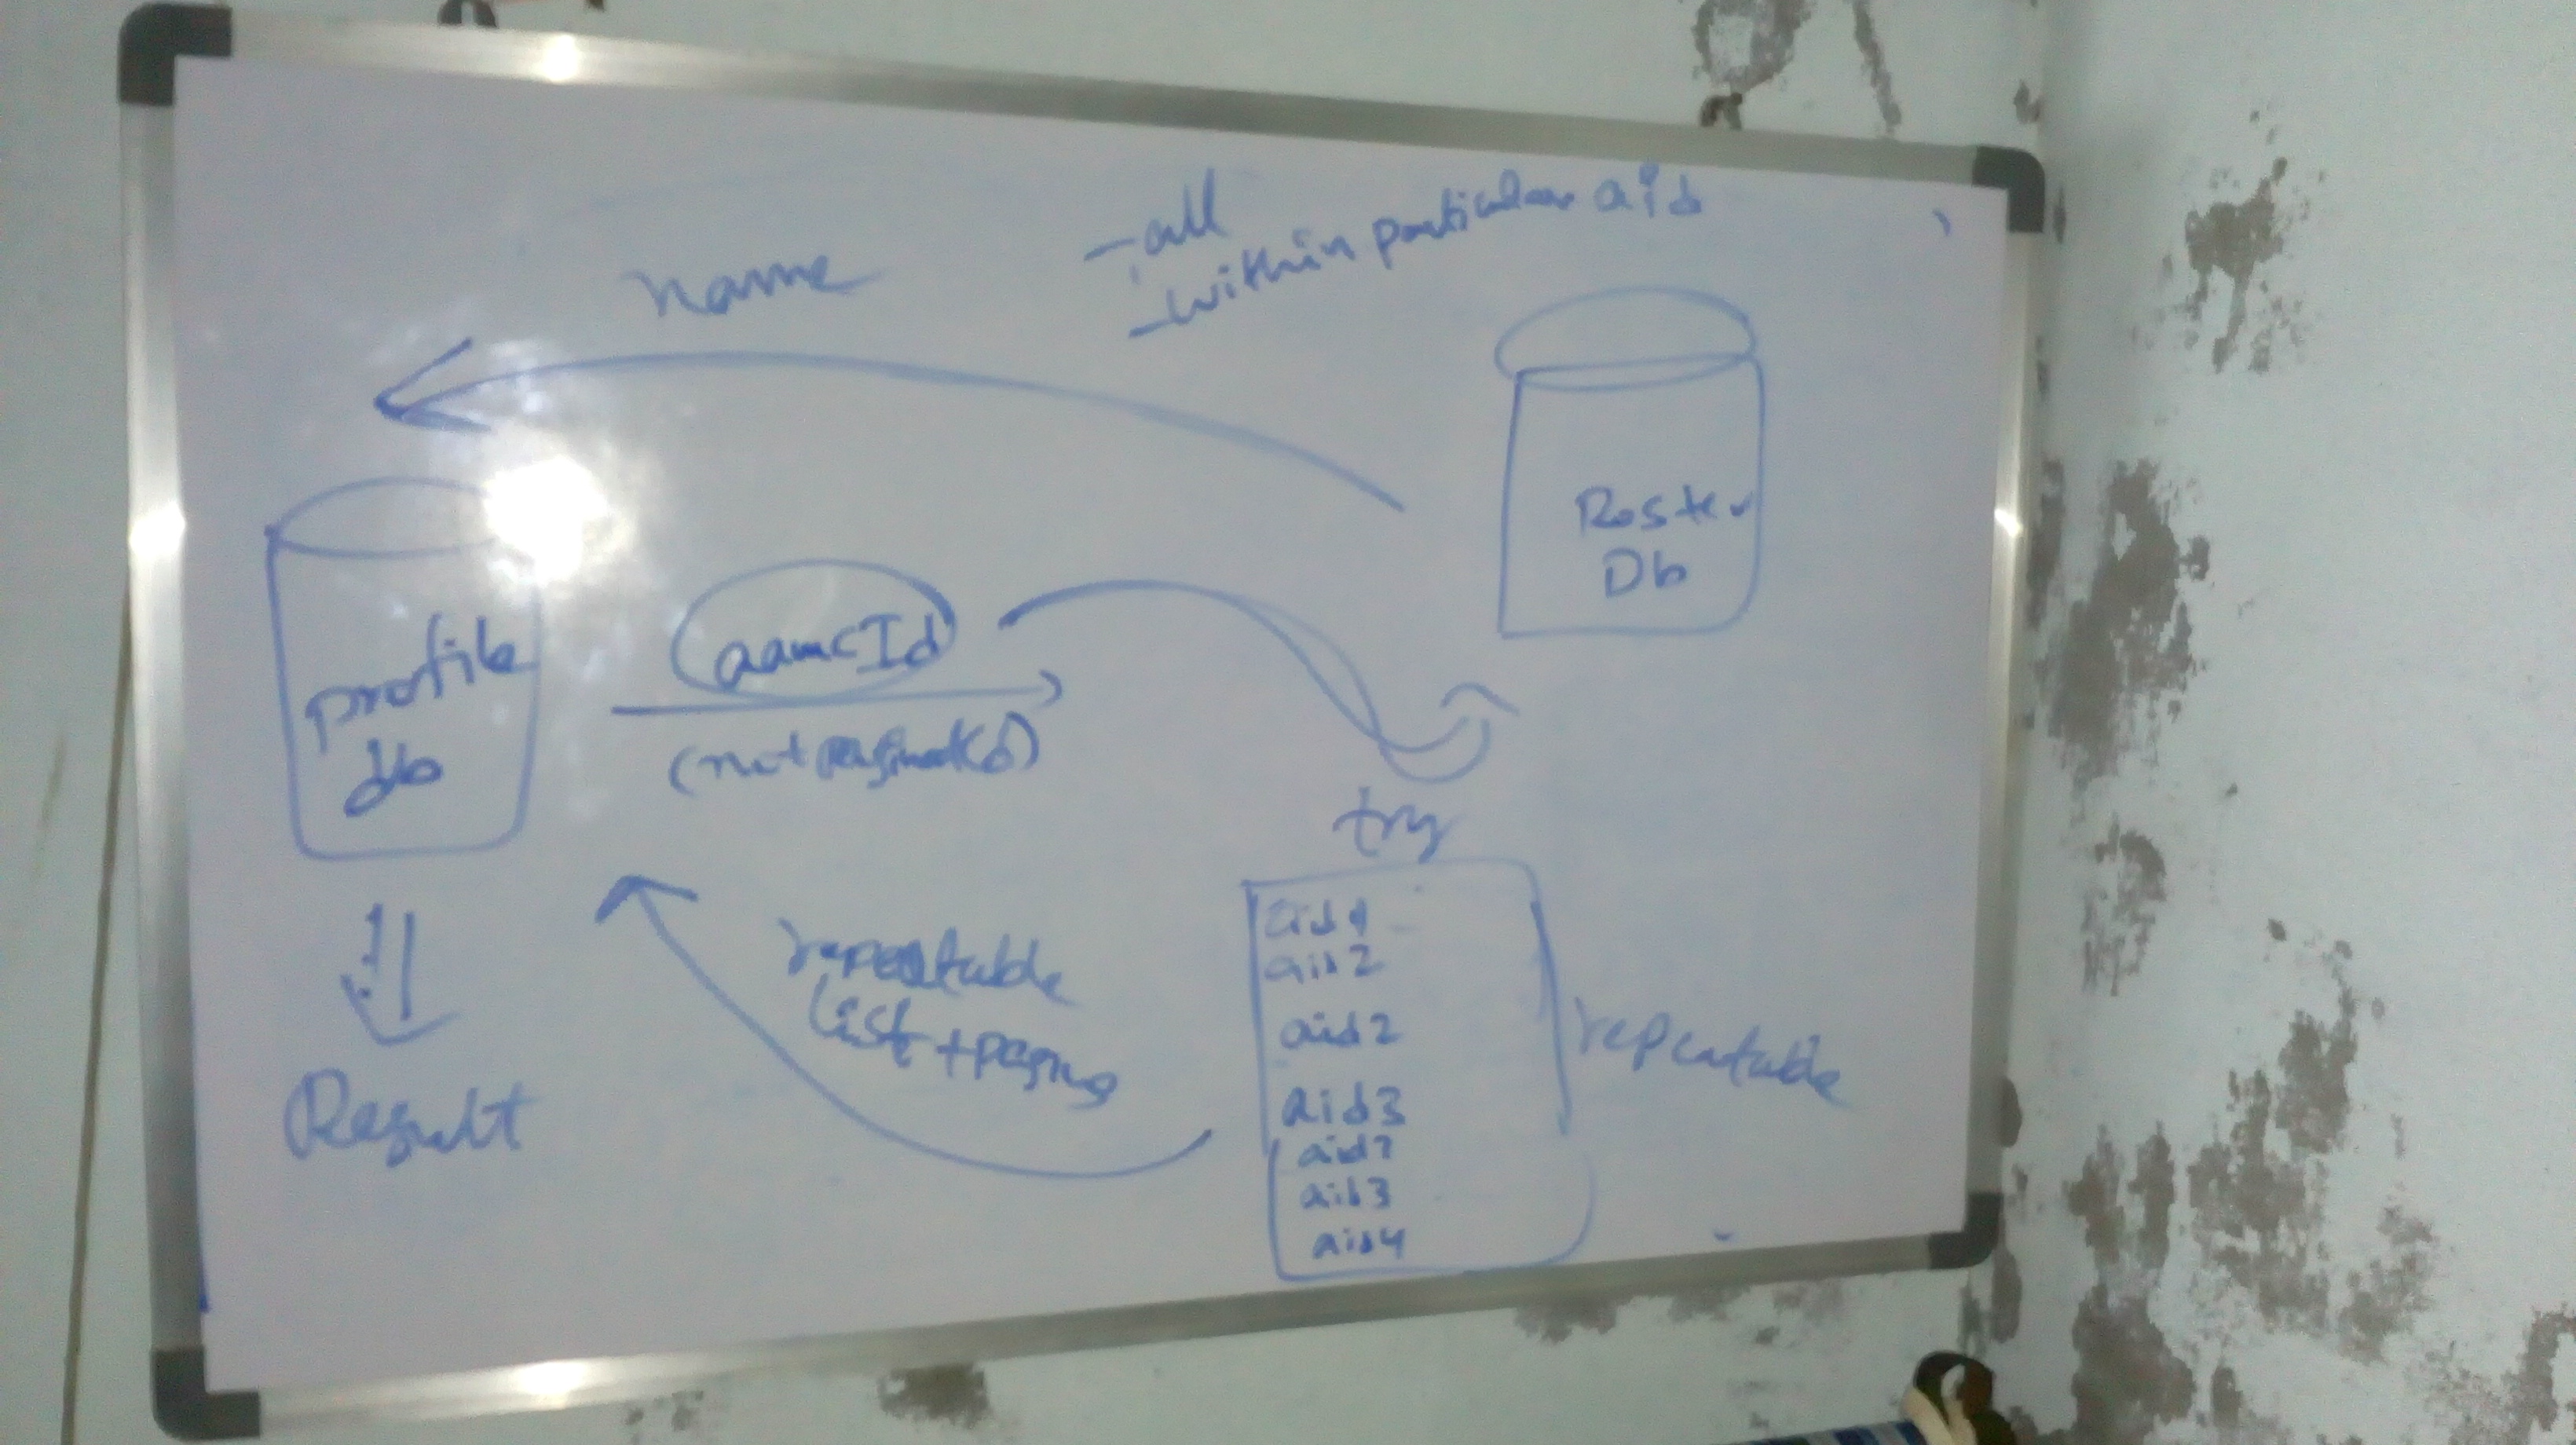 - all
- within particular aid
name
Roster
Db
profile
db
aamcId
(not paginated)
try
aid1
aid2
aid2
aid3
aid3
aid4
repeatable
repeatable
list + paging
Result